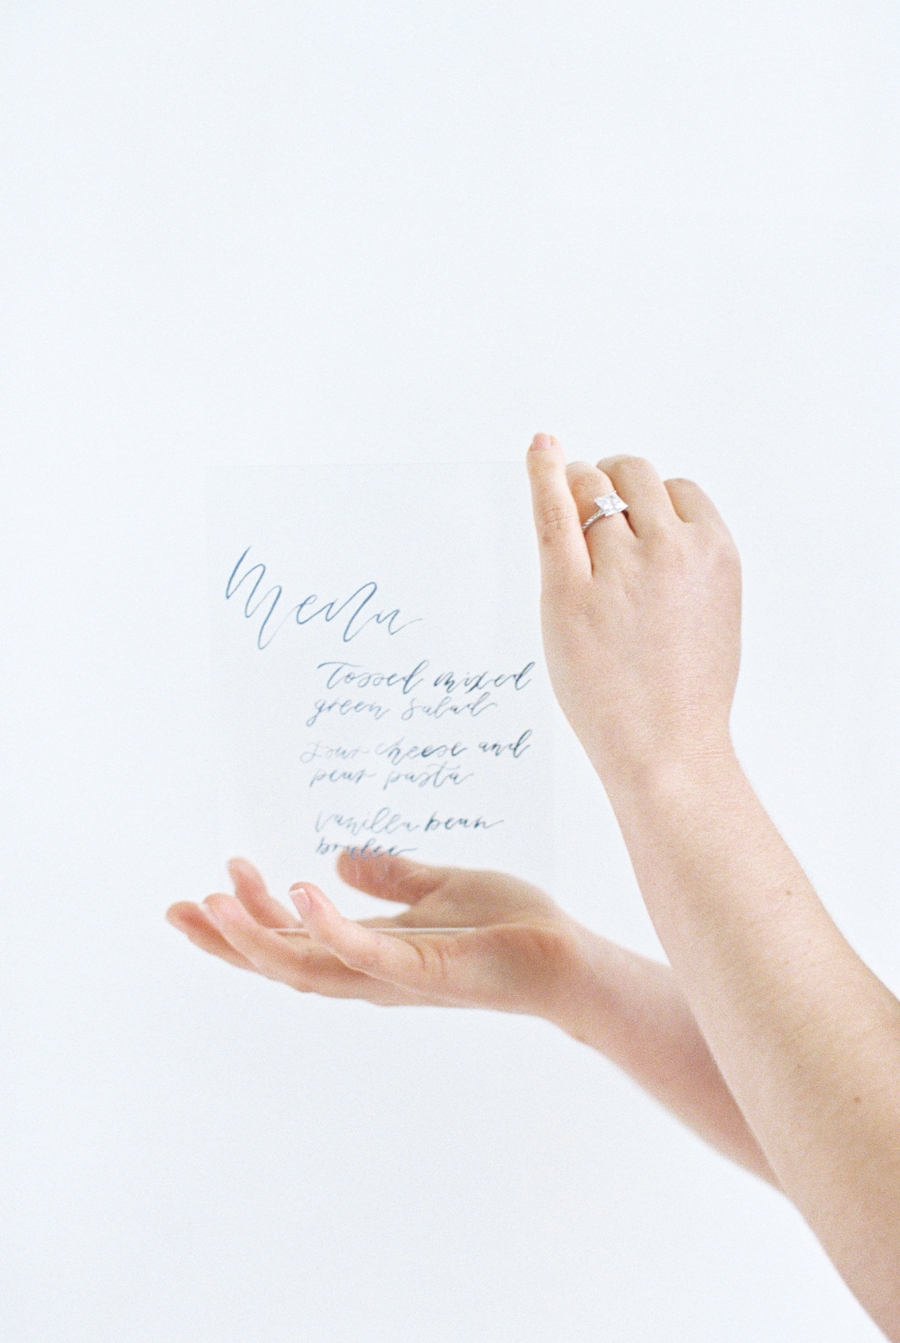 Menu
Tossed mixed
green salad
Four cheese and
pear pasta
Vanilla bean
brulee